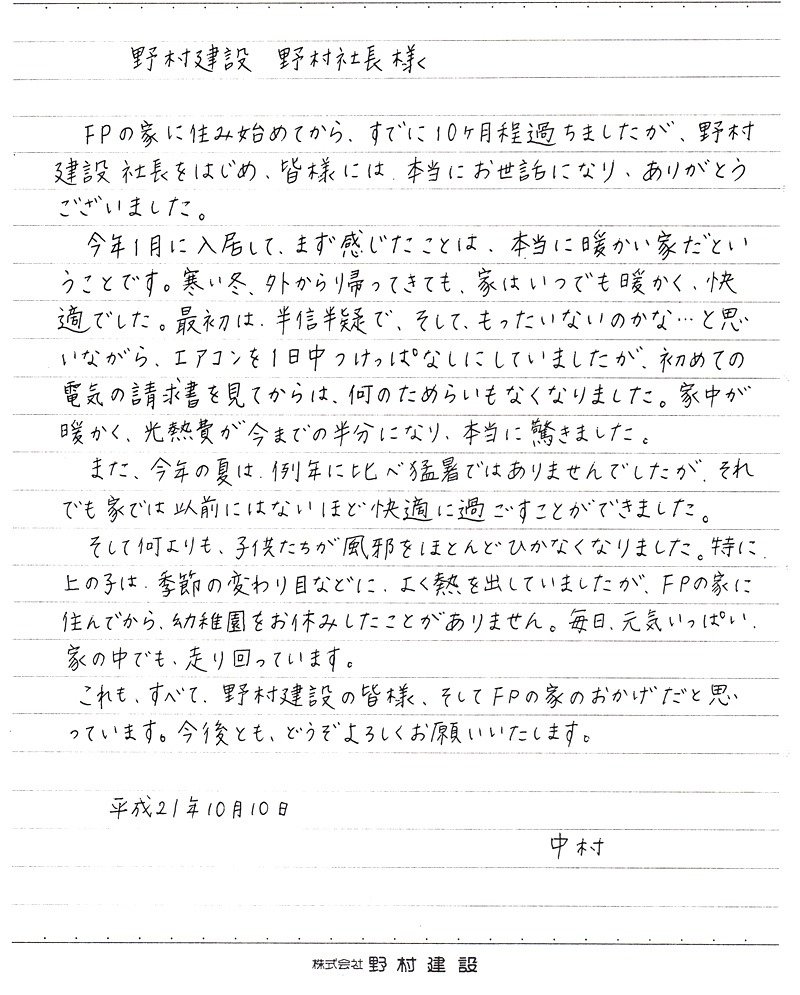 野村建設 野村社長様
FPの家に住み始めてから、すでに10ヶ月程過ちましたが、野村
建設 社長をはじめ、皆様には、本当にお世話になり、ありがとう
ございました。
今年1月に入居して、まず感じたことは、本当に暖かい家だとい
うことです。寒い冬、外から帰ってきても、家はいつでも暖かく、快
適でした。最初は、半信半疑で、そして、もったいないのかな…と思
いながら、エアコンを1日中つけっぱなしにしていましたが、初めての
電気の請求書を見てからは、何のためらいもなくなりました。家中が
暖かく、光熱費が今までの半分になり、本当に驚きました。
また、今年の夏は、例年に比べ猛暑ではありませんでしたが、それ
でも家では以前にはないほど快適に過ごすことができました。
そして何よりも、子供たちが風邪をほとんどひかなくなりました。特に、
上の子は、季節の変わり目などに、よく熱を出していましたが、FPの家に
住んでから、幼稚園をお休みしたことがありません。毎日、元気いっぱい、
家の中でも、走り回っています。
これも、すべて、野村建設の皆様、そしてFPの家のおかげだと思
っています。今後とも、どうぞよろしくお願いいたします。
平成21年10月10日
中村
株式会社 野村建設